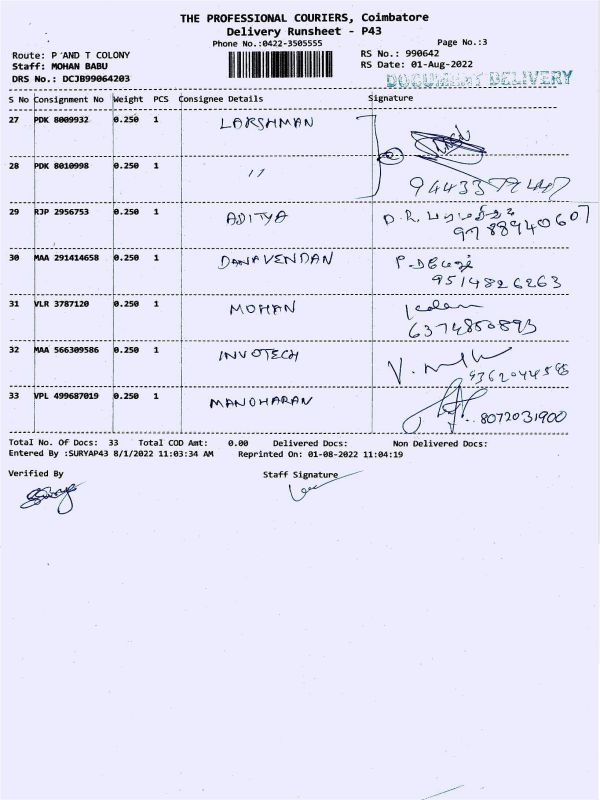 THE PROFESSIONAL COURIERS, Coimbatore
Delivery Runsheet - P43
Phone No.:0422-3505555
Page No.:3
Route: P AND T COLONY
RS No.: 990642
Staff: MOHAN BABU
RS Date: 01-Aug-2022
DRS No.: DCJB99064203
DOCUMENT DELIVERY
S No Consignment No Weight PCS Consignee Details Signature
27 PDK 8009932 0.250 1 LAKSHMAN
28 PDK 8010998 0.250 1 "
29 RJP 2956753 0.250 1 ADITYA D.R.
9788940607
30 MAA 291414658 0.250 1 DANAVENDAN
9514826263
31 VLR 3787120 0.250 1 MOHAN
6374850893
32 MAA 566309586 0.250 1 INVOTECH
9362044595
33 VPL 499687019 0.250 1 MANOHARAN 8072031900
Total No. Of Docs: 33 Total COD Amt: 0.00 Delivered Docs: Non Delivered Docs:
Entered By :SURYAP43 8/1/2022 11:03:34 AM Reprinted On: 01-08-2022 11:04:19
Verified By Staff Signature